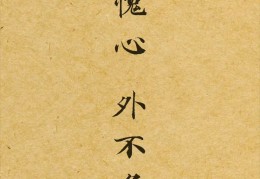 愧心 外不